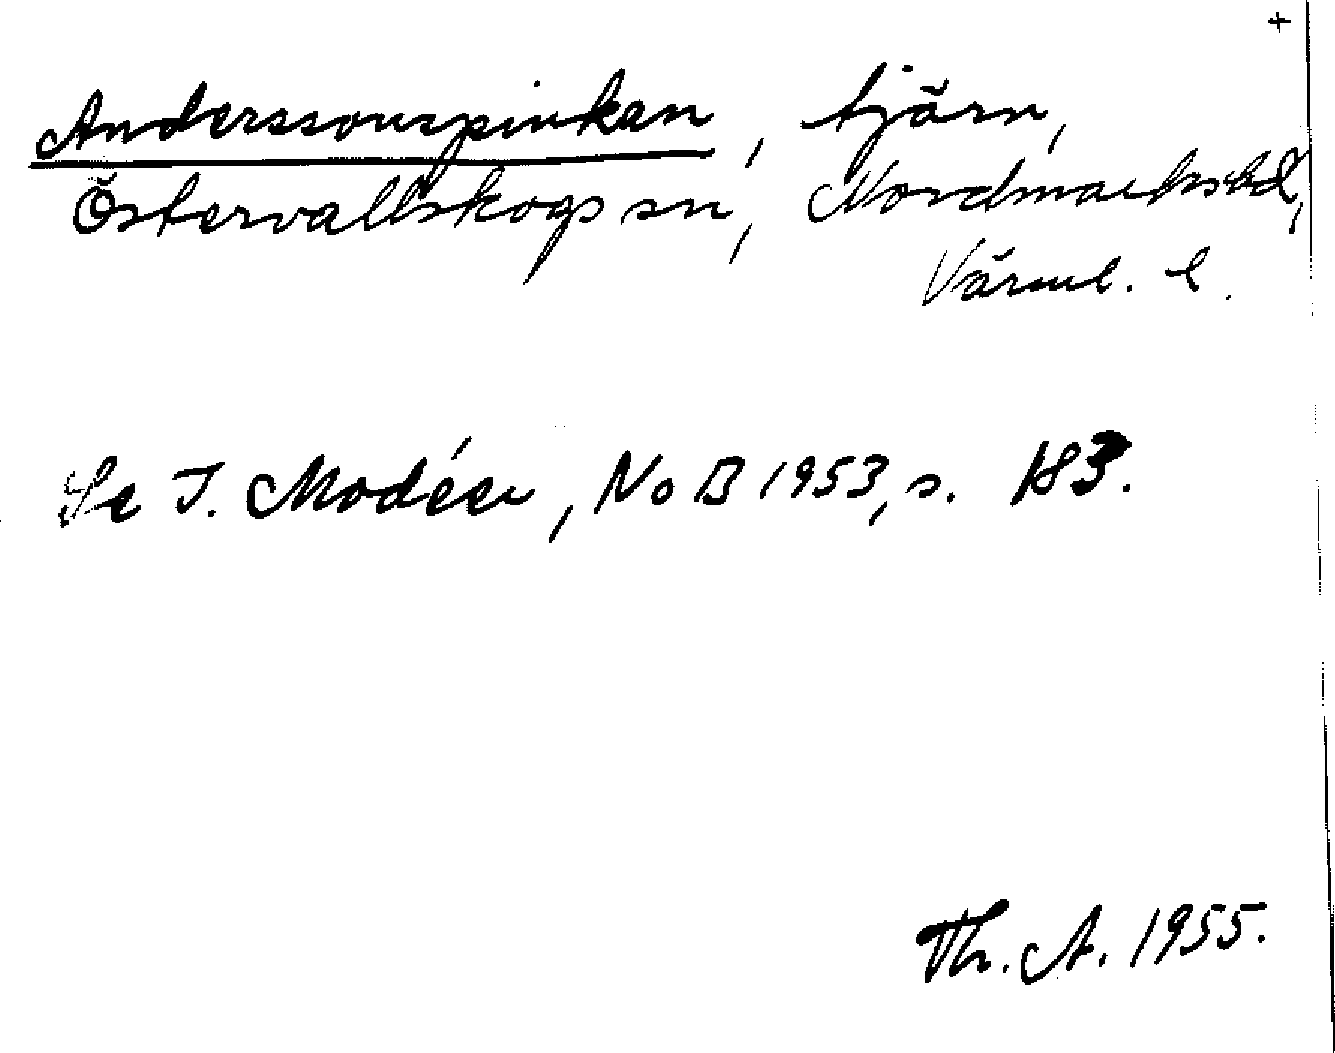 +
Anderssonspinkan, tjärn,
Östervallskogs sn, Nordmarks hd,
Värml. l.
Se I. Modéer, NoB 1953, s. 183.
Th. A. 1955.